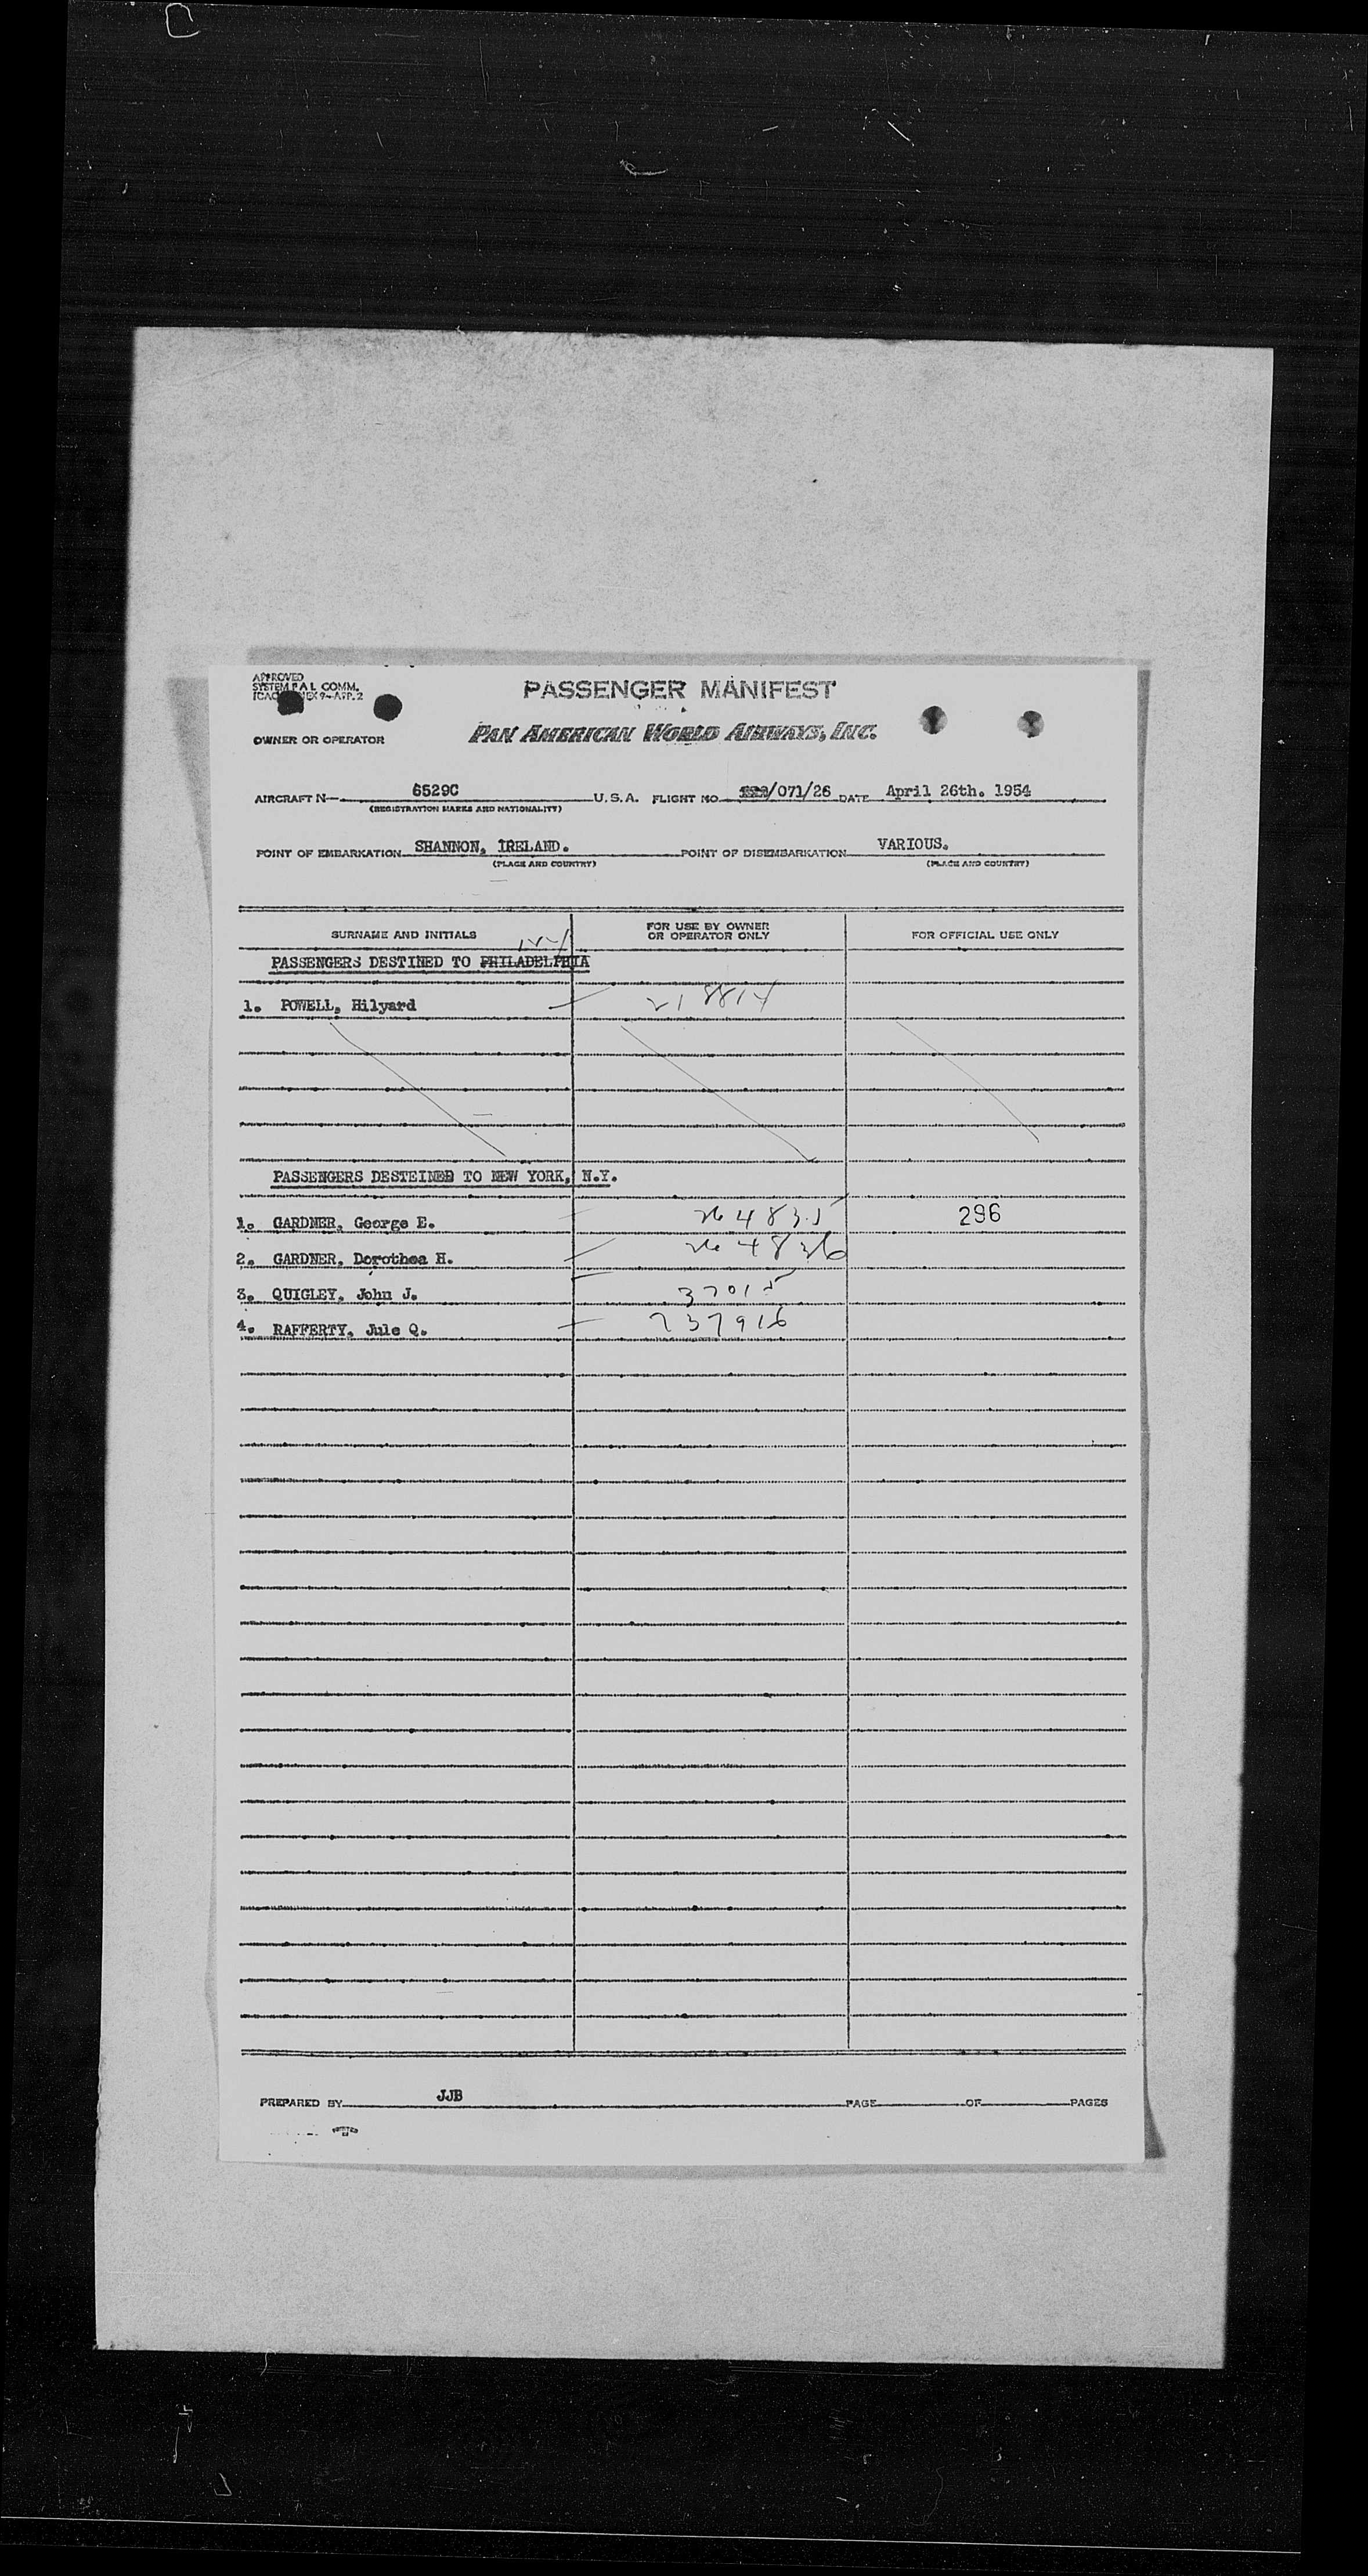 APPROVED
SYSTEM P.A.L. COMM.
PASSENGER MANIFEST
OWNER OR OPERATOR PAN AMERICAN WORLD AIRWAYS, INC.
AIRCRAFT N 6529C U.S.A. FLIGHT NO. /071/26 DATE April 26th. 1954
(REGISTRATION MARKS AND NATIONALITY)
POINT OF EMBARKATION SHANNON, IRELAND. POINT OF DISEMBARKATION VARIOUS.
(PLACE AND COUNTRY) (PLACE AND COUNTRY)
SURNAME AND INITIALS FOR USE BY OWNER OR OPERATOR ONLY FOR OFFICIAL USE ONLY
PASSENGERS DESTINED TO PHILADELPHIA
1. POWELL, Hilyard 218814
PASSENGERS DESTEINED TO NEW YORK, N.Y.
1. GARDNER, George E. 264835 296
2. GARDNER, Dorothea H. 264836
3. QUIGLEY, John J. 37015
4. RAFFERTY, Jule Q. 237916
PREPARED BY JJB PAGE OF PAGES